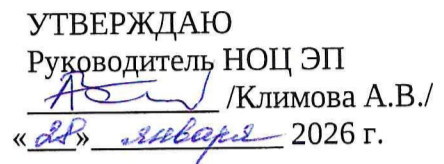 УТВЕРЖДАЮ
Руководитель НОЦ ЭП
/Климова А.В./
«28» января 2026 г.